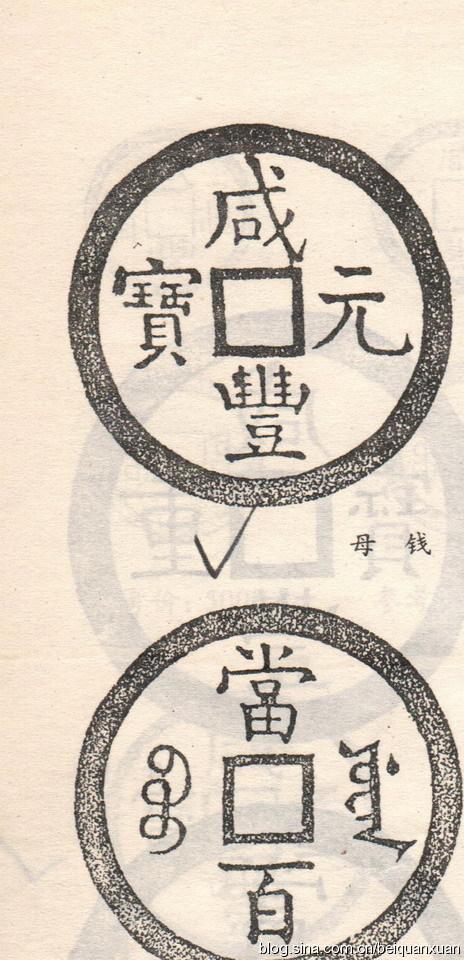 咸豐元寶
母钱
當百
ᠪᠣᠣ
blog.sina.com.cn/beiquanxuan